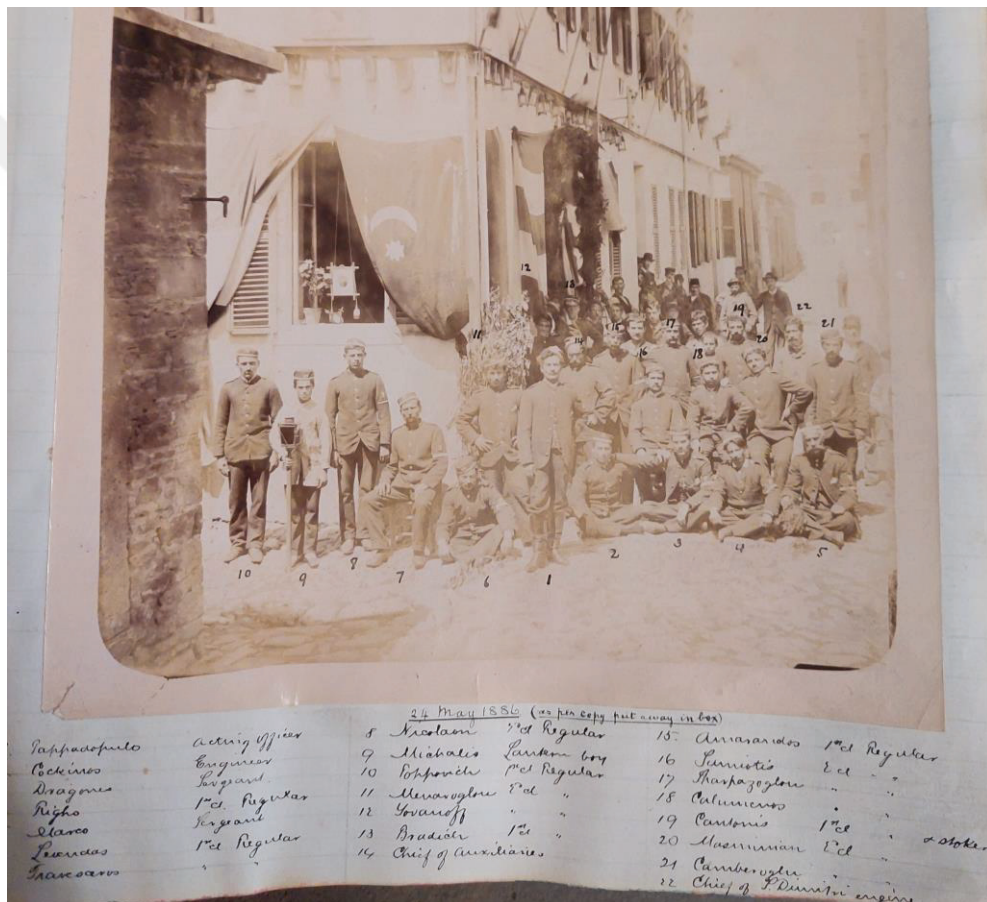 12
13
11
14
15
16
17
18
19
20
22
21
10
9
8
7
6
1
2
3
4
5
24 May 1886 (as per copy put away in box)
Pappadopulo acting officer
Cockinos Engineer
Dragones Sergeant
Righo 1st Regular
Marco Sergeant
Leondas 1st Regular
" "
8 Nicolaon Regular
9 Michalis Lantern boy
10 Poppovich Regular
11 Menaroglou "
12 Yovanoff " "
13 Bradich 1st "
14 Chief of Auxiliaries
15. Amarandos 1st Regular
16 Samiotis " "
17 Tharpazoglou " "
18 Calumenos "
19 Cantonis 1st " & stoker
20 "
21 Camberoglu "
22 Chief of S. Dimitri engine